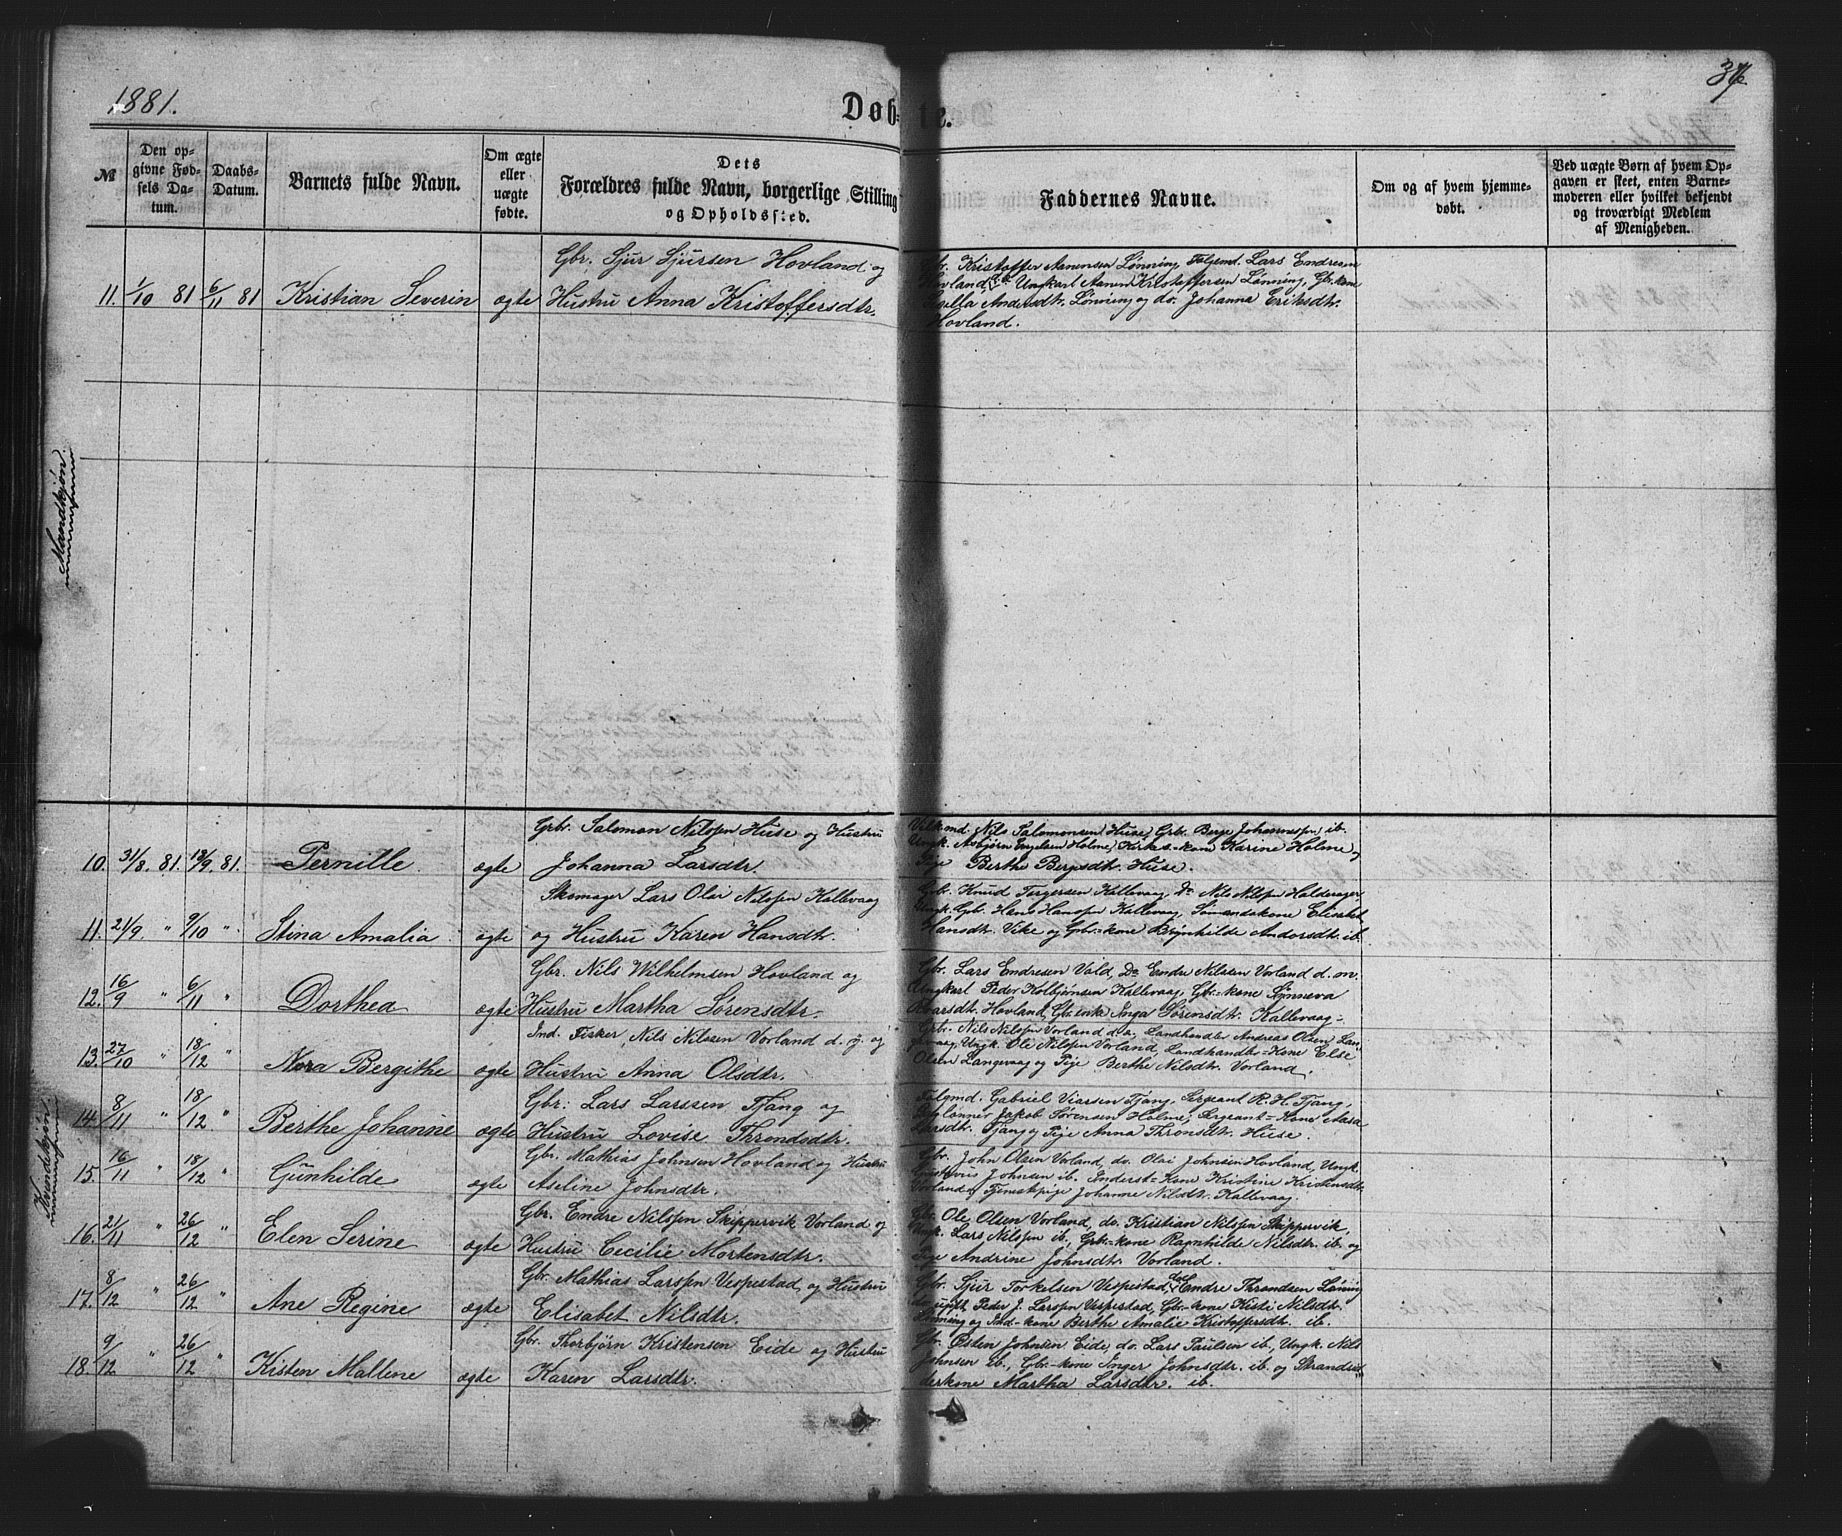 1881.
Døb-te.
37
№
Den op-
givne Fød-
sels Da-
tum.
Daabs-
Datum.
Barnets fulde Navn.
Om ægte
eller
uægte
fødte.
Dets
Forældres fulde Navn, borgerlige Stilling
og Opholdssted.
Faddernes Navne.
Om og af hvem hjemme-
døbt.
Ved uægte Børn af hvem Op-
gaven er skeet, enten Barne-
moderen eller hvilket bekjendt
og troværdigt Medlem
af Menigheden.
Mandkjøn.
11. 1/10 81 6/11 81 Kristian Severin ægte
Gbr. Sjur Sjursen Hovland og
Hustru Anna Kristoffersdtr.
Gbr. Kristoffer Aanensen Lønning, Folgemd. Lars Endresen
Hovland, Ungkarl Aanen Kristoffersen Lønning, Gbr.kone
Andersdtr. Lønning og do. Johanna Eriksdtr.
Hovland.
Kvindekjøn.
10. 31/8 81. 18/9 81. Pernille. ægte
Gbr. Salomon Nilssen Huse og Hustru
Johanna Larsdtr.
Nils Salomonsen Huse, Gbr. Berje Johannessen ib.
Ungk. Asbjørn Engelsen Holme, Kirkes.-kone Karine Holme og
Pige Berthe Bergsdtr. Huse.
11. 21/9. " 9/10 " Stina Amalia. ægte
Skomager Lars Olai Nilssen Kallevaag
og Hustru Karen Hansdtr.
Gbr. Knud Torgersen Kallevaag, Do Nils Nilssen Halderager
Ungk. Gbr. Hans Hanssen Kallevaag, Sømandskone Elisabet
Hansdtr. Vike og Gbr.-kone Brynhilde Andersdtr. ib.
12. 16/9 " 6/11 " Dorthea ægte
Gbr. Nils Wilhelmsen Hovland og
Hustru Martha Sørensdtr.
Gbr. Lars Endresen Vald, Do Endre Nilssen Vorland d. .
Ungkarl Peder Kolbjørnsen Kallevaag, Gbr.-kone Synneva
Ivarsdtr. Hovland, Gbr.enk Inga Sørensdtr. Kallevaag.
13. 27/10 " 18/12 " Nora Bergithe ægte
Ind. Fisker, Nils Nilssen Vorland d. y. og
Hustru Anna Olsdtr.
Gbr. Nils Nilssen Vorland d.æ. Landhandler Andreas Olsen Lan-
gevaag, Ungk. Ole Nilssen Vorland, Landhandler-Kone Else
Olsen Langevaag og Pige Berthe Nilsdtr. Vorland.
14. 8/11 " 18/12. " Berthe Johanne ægte
Gbr: Lars Larssen Tjong og
Hustru Lovise Throndsdtr.
Folgmd. Gabriel Tjong, Sergeant R. H. Tjong,
Jakob Sørensen Holme, Sergeant-Kone Aasa
Larsdtr. Tjong og Pige Anna Thronsdtr. Huse.
15. 16/11 " 18/12 " Gunhilde ægte
Gbr. Mathias Johnsen Hovland og Hustru
Aseline Johnsdtr.
Gbr. John Olsen Vorland, do. Olai Johnsen Hovland, Ungk.
Johnsen ib. Inderst-Kone Kristine Kristensdtr.
Vorland og Tjenstpige Johanne Nilsdtr. Kallevaag.
16. 21/11 " 26/12 " Elen Serine ægte
Gbr. Endre Nilssen Skippervik Vorland og
Hustru Cecilie Mortensdtr.
Gbr. Ole Olsen Vorland, do. Kristian Nilssen Skippervik,
Ungk. Lars Nilssen ib. Gbr.-kone Ragnhilde Nilsdtr. ib. og
Pige Andrine Johnsdtr Vorland.
17. 8/12 " 26/12 " Ane Regine ægte
Gbr. Mathias Larssen Vespestad, og Hustru
Elisabet Nilsdtr.
Gbr. Sjur Torkelsen Vespestad, Endre Throndsen Lønning
Peder J. Larssen Vespestad, Gbr.-kone Kisti Nilsdtr.
Lønning og Ind-kone Berthe Amalie Kristoffersdtr. ib.
18. 9/12 " 26/12 " Kisten Mallene ægte
Gbr. Thorbjørn Kristensen Eide og Hustru
Karen Larsdtr.
Gbr. Østen Johnsen Eide, do. Lars Paulsen ib, Ungk. Nils
Johnsen ib., Gbr.-kone Inger Johnsdtr. ib. og Strandsid-
derkone Martha Larsdtr. ib.